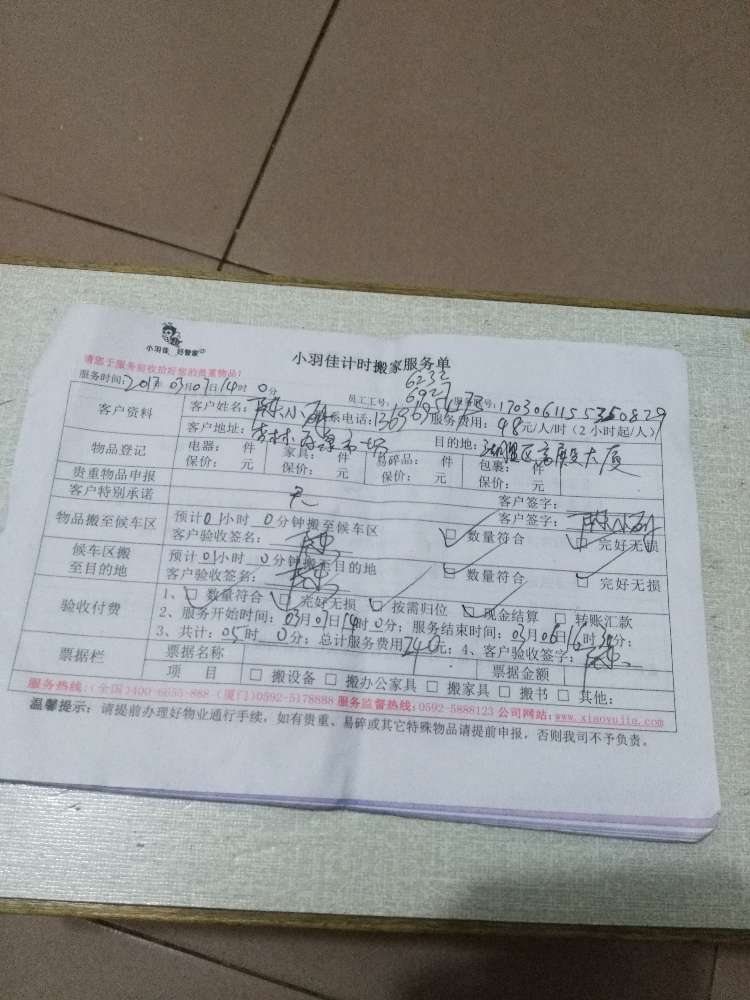 小羽佳 好管家
小羽佳计时搬家服务单
请您于服务前收拾好您的贵重物品!
服务时间:2017年03月07日14时0分 员工工号: 6232 6927 服务单号:
客户资料 客户姓名: 陈小 联系电话: 服务费用:48元/人/时(2小时起/人)
客户地址:杏林 目的地:
物品登记 电器: 件 家具: 件 易碎品: 件 包裹: 件
保价: 元 保价: 元 保价: 元 保价: 元
贵重物品申报 客户签字:
客户特别承诺 无 客户签字: 陈小
物品搬至候车区 预计01小时0分钟搬至候车区 □ 数量符合 □ 完好无损
客户验收签名: 陈
候车区搬至目的地 预计01小时0分钟搬至目的地 □ 数量符合 □ 完好无损
客户验收签名: 陈
验收付费 1、□ 数量符合 □ 完好无损 □ 按需归位 □ 现金结算 □ 转账汇款
2、服务开始时间:03月07日14时0分;服务结束时间:03月 日16时30分;
3、共计:05时0分;总计服务费用240元;4、客户验收签字:陈
票据栏 票据名称 票据金额
项 目 □ 搬设备 □ 搬办公家具 □ 搬家具 □ 搬书 □ 其他:
服务热线:(全国)400-6655-888 (厦门)0592-5178888 服务监督热线:0592-5888123 公司网站:www.xiaoyujia.com
温馨提示:请提前办理好物业通行手续,如有贵重、易碎或其它特殊物品请提前申报,否则我司不予负责。